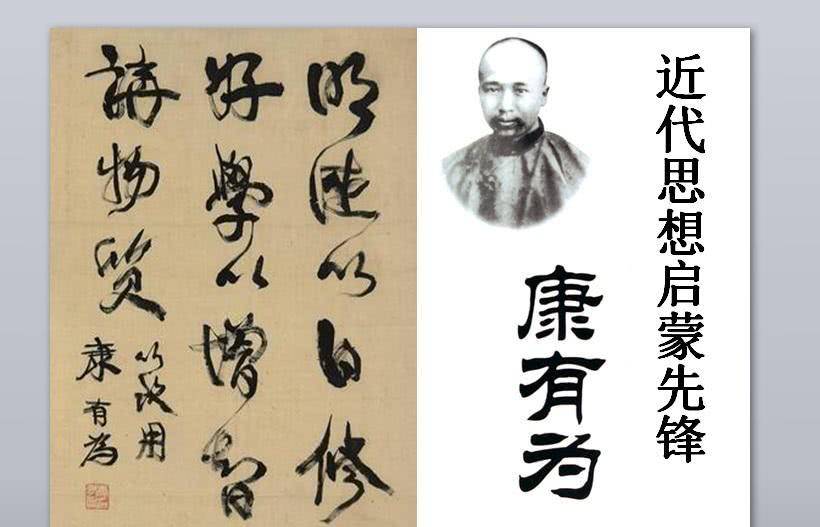 近代思想启蒙先锋
康有为
明德以自修
好學以增智
講物質
以致用
康有為